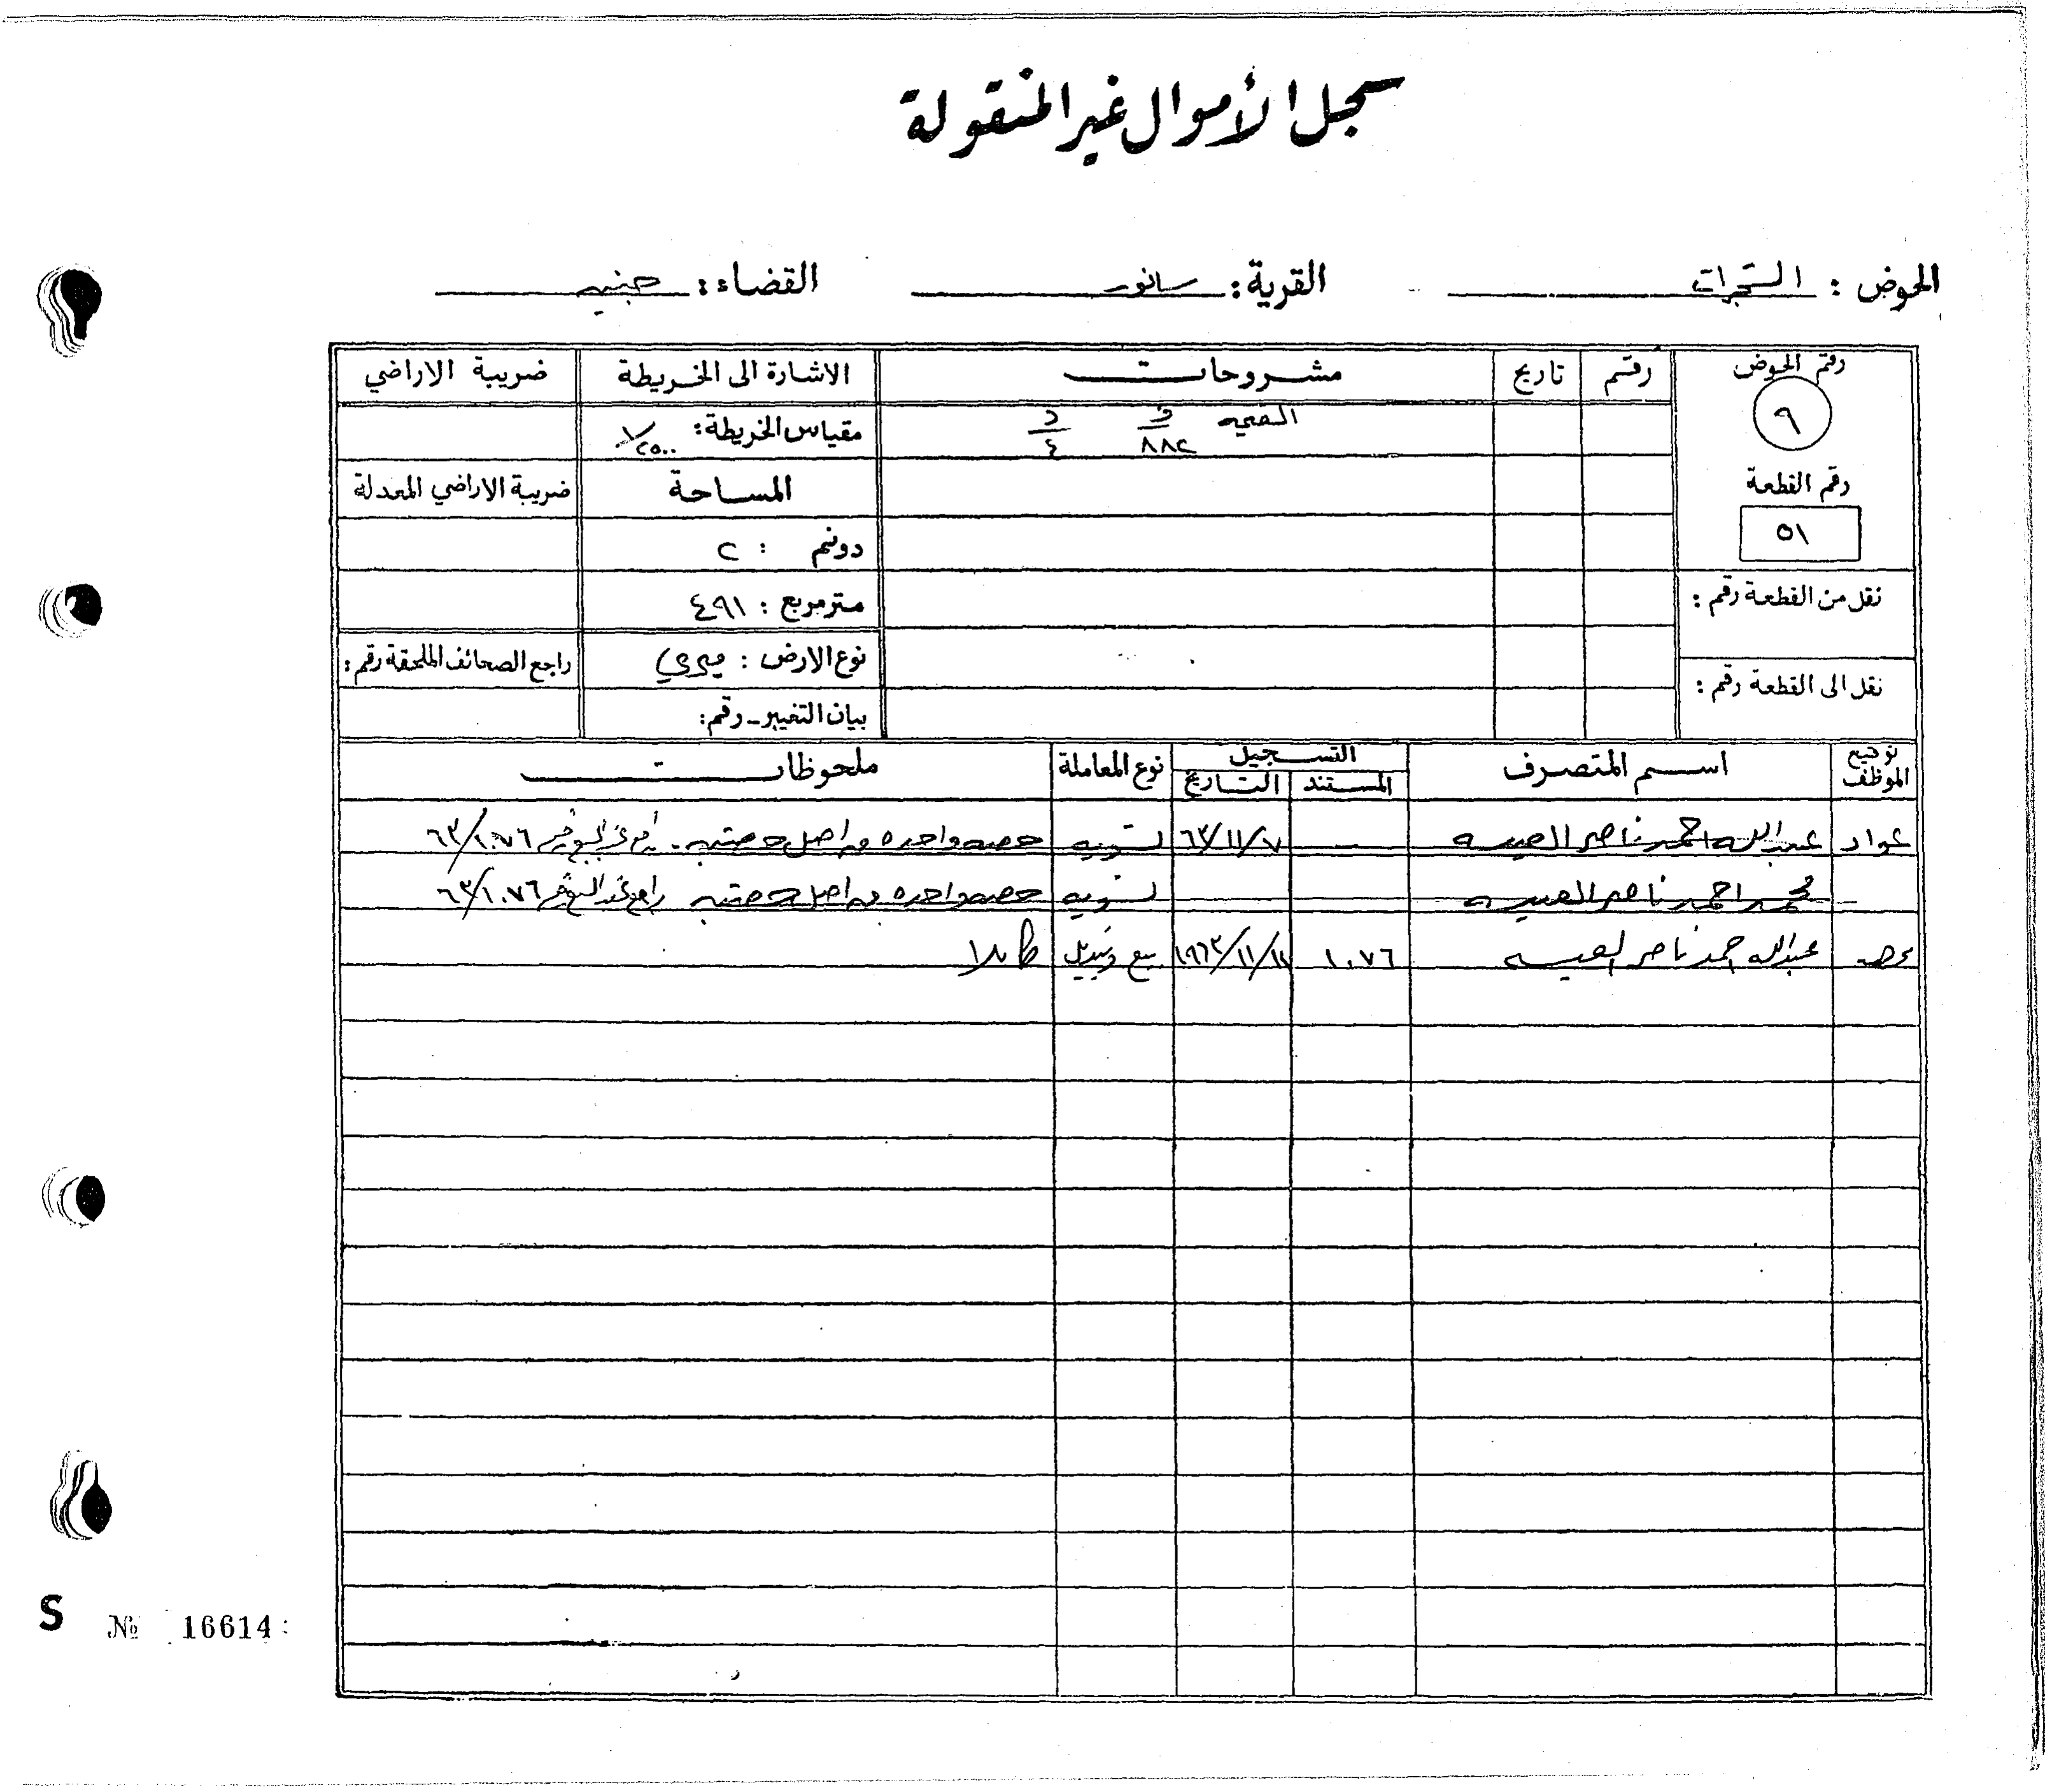 سجل الأموال غير المنقولة
الحوض : الشجرات القرية : سانور القضاء : جنين
رقم الحوض رقم تاريخ مشروحات الاشارة الى الخريطة ضريبة الاراضي
٩ القيمة ف ٨٨٢ د ٤ مقياس الخريطة : ١/٢٥٠٠
رقم القطعة المساحة ضريبة الاراضي المعدلة
٥١ دونم : ٢
نقل من القطعة رقم : متر مربع : ٤٩١
نوع الارض : ميري راجع الصحائف الملحقة رقم :
نقل الى القطعة رقم : بيان التغيير - رقم :
توقيع الموظف اسم المتصرف التسجيل المستند التاريخ نوع المعاملة ملحوظات
عواد عبدالله احمد ناصر العيسه ٦٣/١١/٧ تسويه حصه واحده من اصل حصتين - راجع عقد البيع رقم ٦٣/١٠٧٦
محمد احمد ناصر العيسه تسويه حصه واحده من اصل حصتين راجع عقد البيع رقم ٦٣/١٠٧٦
عبدالله احمد ناصر العيسه ١٠٧٦ بيع وتبديل كاملا
S № 16614